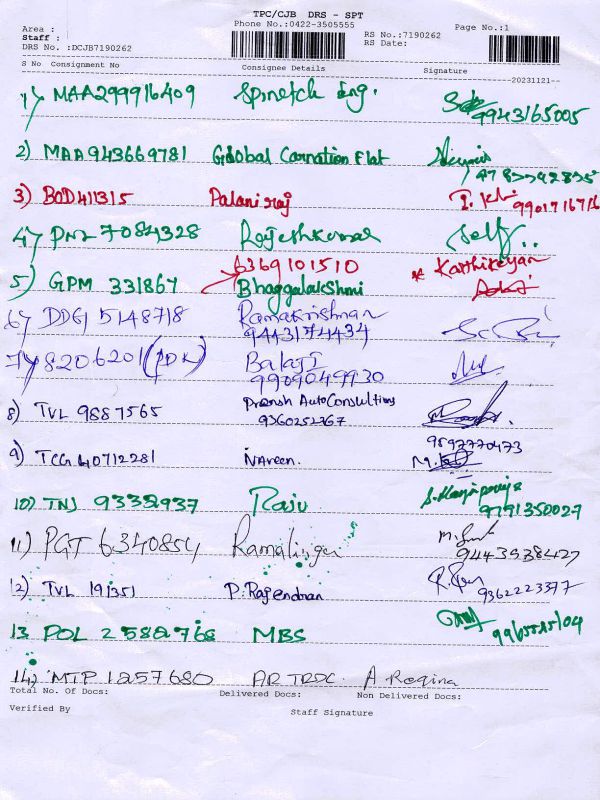 TPC/CJB DRS - SPT
Area : Phone No.:0422-3505555 Page No.:1
Staff : RS No.:7190262
DRS No. :DCJB7190262 RS Date:
S No Consignment No Consignee Details Signature
20231121
1) MAA299916409 Spinetch Eng.
9943165005
2) MAA943669781 Global Carnation Flat
3) BOD411315 Palaniraj
4) PNR 7084328 Rajeshkumar Self..
6369101510 * Karthikeyan
5) GPM 331867 Bhaggalakshmi
6) DDG 5148718 Ramakrishnan
9443174434
7) 8206201 (PDK) Balaji
9909049930
8) TVL 9887565 Pransh AutoConsulting
9360252367
9597770473
9) TCG 40712281 Naveen.
10) TNJ 9332937 Raju
9791350027
11) PGT 6340854 Ramalingam
9443538427
12) TVL 191351 P. Rajendran
9362223377
13 POL 2582768 MBS
14) MTP 1257680 AR TRDC. A Regina
Total No. Of Docs: Delivered Docs: Non Delivered Docs:
Verified By Staff Signature